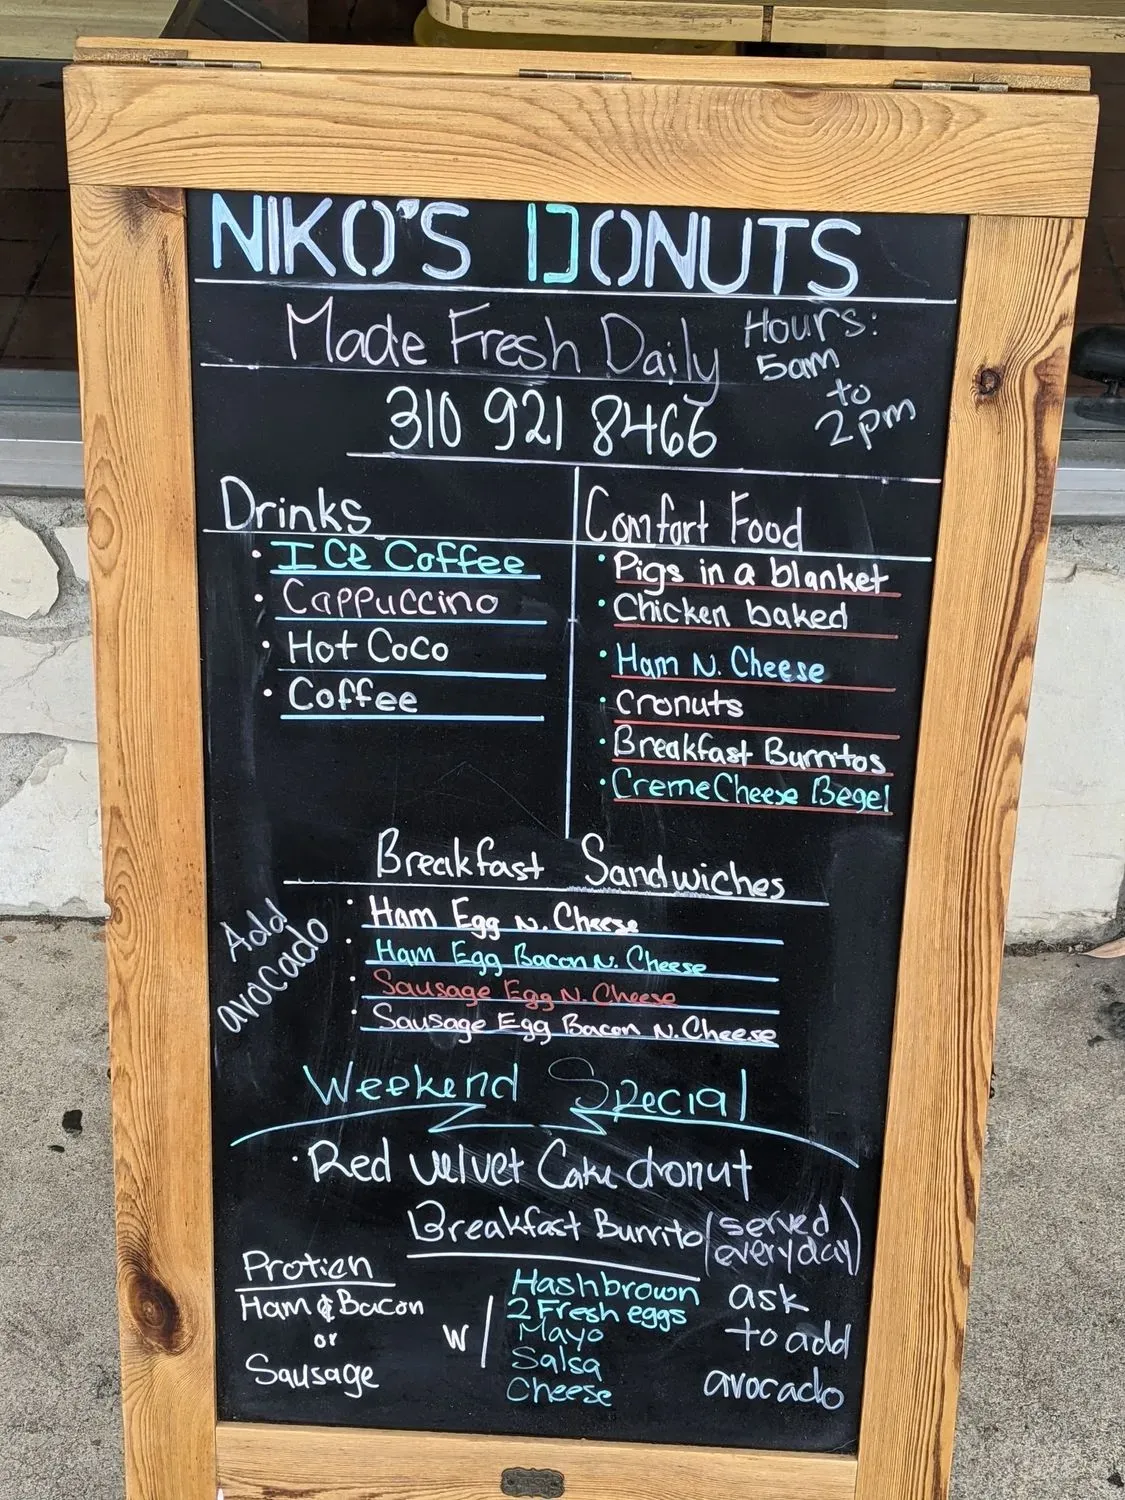 NIKO'S DONUTS
Made Fresh Daily
Hours:
5am
to
2pm
310 921 8466
Drinks
• ICe Coffee
• Cappuccino
• Hot Coco
• Coffee
Comfort Food
• Pigs in a blanket
• Chicken baked
• Ham N. Cheese
• Cronuts
• Breakfast Burritos
• CremeCheese Begel
Breakfast Sandwiches
Add
avocado
• Ham Egg N. Cheese
• Ham Egg Bacon N. Cheese
• Sausage Egg N. Cheese
• Sausage Egg Bacon N. Cheese
Weekend Special
• Red velvet Cake donut
Breakfast Burrito (served
everyday)
Protien
Ham & Bacon
or
Sausage
W/
Hashbrown
2 Fresh eggs
Mayo
Salsa
Cheese
ask
to add
avocado